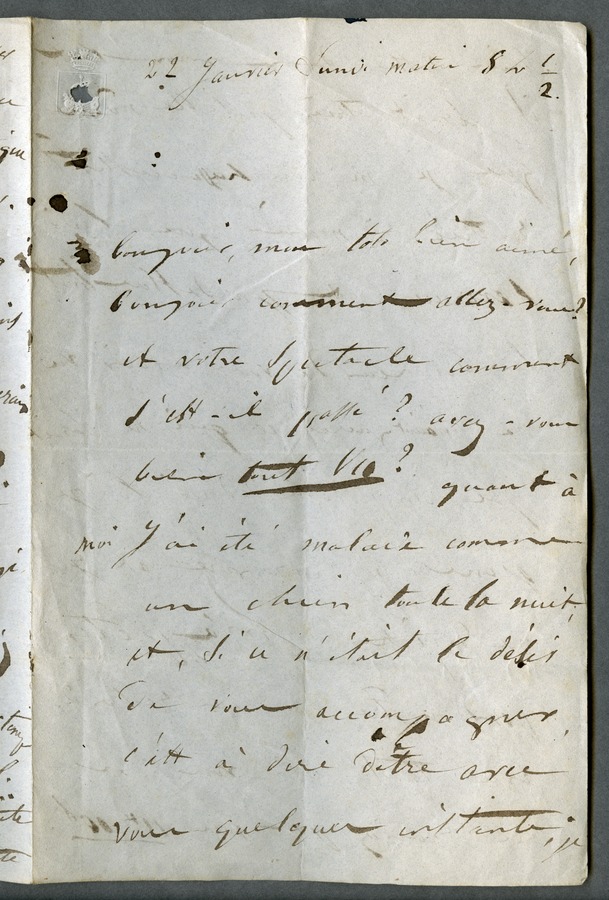 22 Janvier Lundi matin 8 h 1/2.
bonjour, mon toto bien aimé,
bonjour comment allez-vous?
et votre spectacle comment
s'est-il passé? avez-vous
bien tout vu? quant à
moi j'ai été malade comme
un chien toute la nuit,
et, si ce n'était le désir
de vous accompagner,
c'est à dire d'être avec
vous quelques instants, je